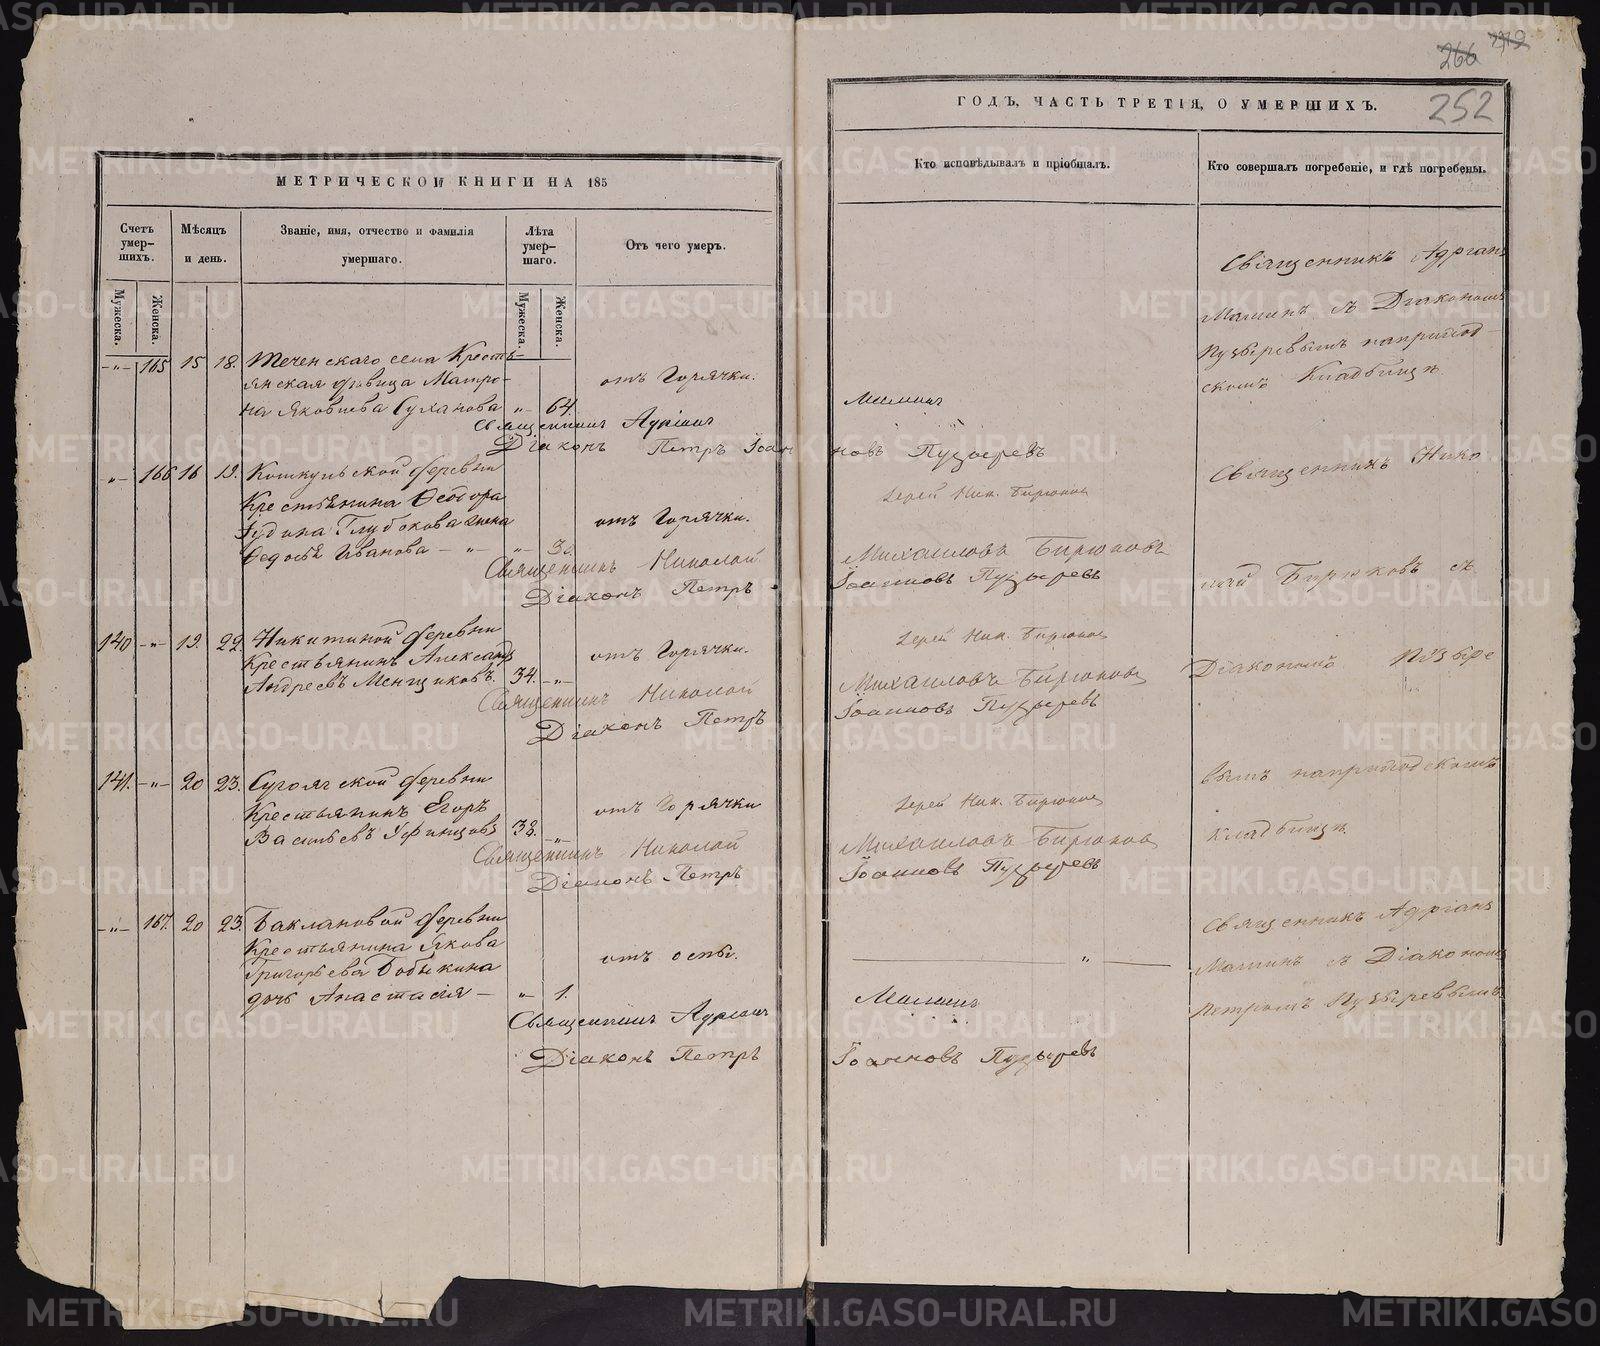 266 279
252
МЕТРИЧЕСКОЙ КНИГИ НА 185
ГОДЪ, ЧАСТЬ ТРЕТІЯ, О УМЕРШИХЪ.
Счетъ умер-шихъ.
Мужеска.
Женска.
Мѣсяцъ и день.
Званіе, имя, отчество и фамилія умершаго.
Лѣта умер-шаго.
Мужеска.
Женска.
Отъ чего умеръ.
Кто исповѣдывалъ и пріобщалъ.
Кто совершалъ погребеніе, и гдѣ погребены.
-„- 165 15 18. Теченскаго села Кресть-
янская дѣвица Матро-
на Яковлева Суханова „- 64.
отъ Горячки.
Священникъ Адріанъ Маминъ
Діаконъ Петръ Іоанновъ Пузыревъ
Священникъ Адріанъ
Маминъ съ Діакономъ
Пузыревымъ наприход-
скомъ Кладбищѣ
-„- 166 16 19. Кошкульской деревни
Крестьянина Ѳедора
Глубокова жена
Федосья Иванова -„-
отъ Горячки.
Священникъ Николай Михаиловъ Бирюковъ
Діаконъ Петръ Іоанновъ Пузыревъ
Іерей Ник. Бирюковъ
Священникъ Нико
лай Бирюковъ съ
140 -„- 19. 22. Никитиной деревни
Крестьянинъ Александръ
Андреевъ Менщиковъ. 34. -„-
отъ Горячки.
Священникъ Николай Михаиловъ Бирюковъ
Діаконъ Петръ Іоанновъ Пузыревъ
Іерей Ник. Бирюковъ
Діакономъ Пузыре
141. -„- 20 23. Сугоякской деревни
Крестьянинъ Егоръ
Васильевъ Уфинцовъ 38. „
отъ Горячки
Священникъ Николай Михаиловъ Бирюковъ
Діаконъ Петръ Іоанновъ Пузыревъ
Іерей Ник. Бирюковъ
вымъ наприходскомъ
Кладбищѣ.
-„- 167. 20 23. Баклановой деревни
Крестьянина Якова
Григорьева Бобыкина
дочь Анастасія - „ 1.
отъ оспы.
Священникъ Адріанъ Маминъ
Діаконъ Петръ Іоанновъ Пузыревъ
Священникъ Адріанъ
Маминъ съ Діакономъ
Петромъ Пузыревымъ.
METRIKI.GASO-URAL.RU